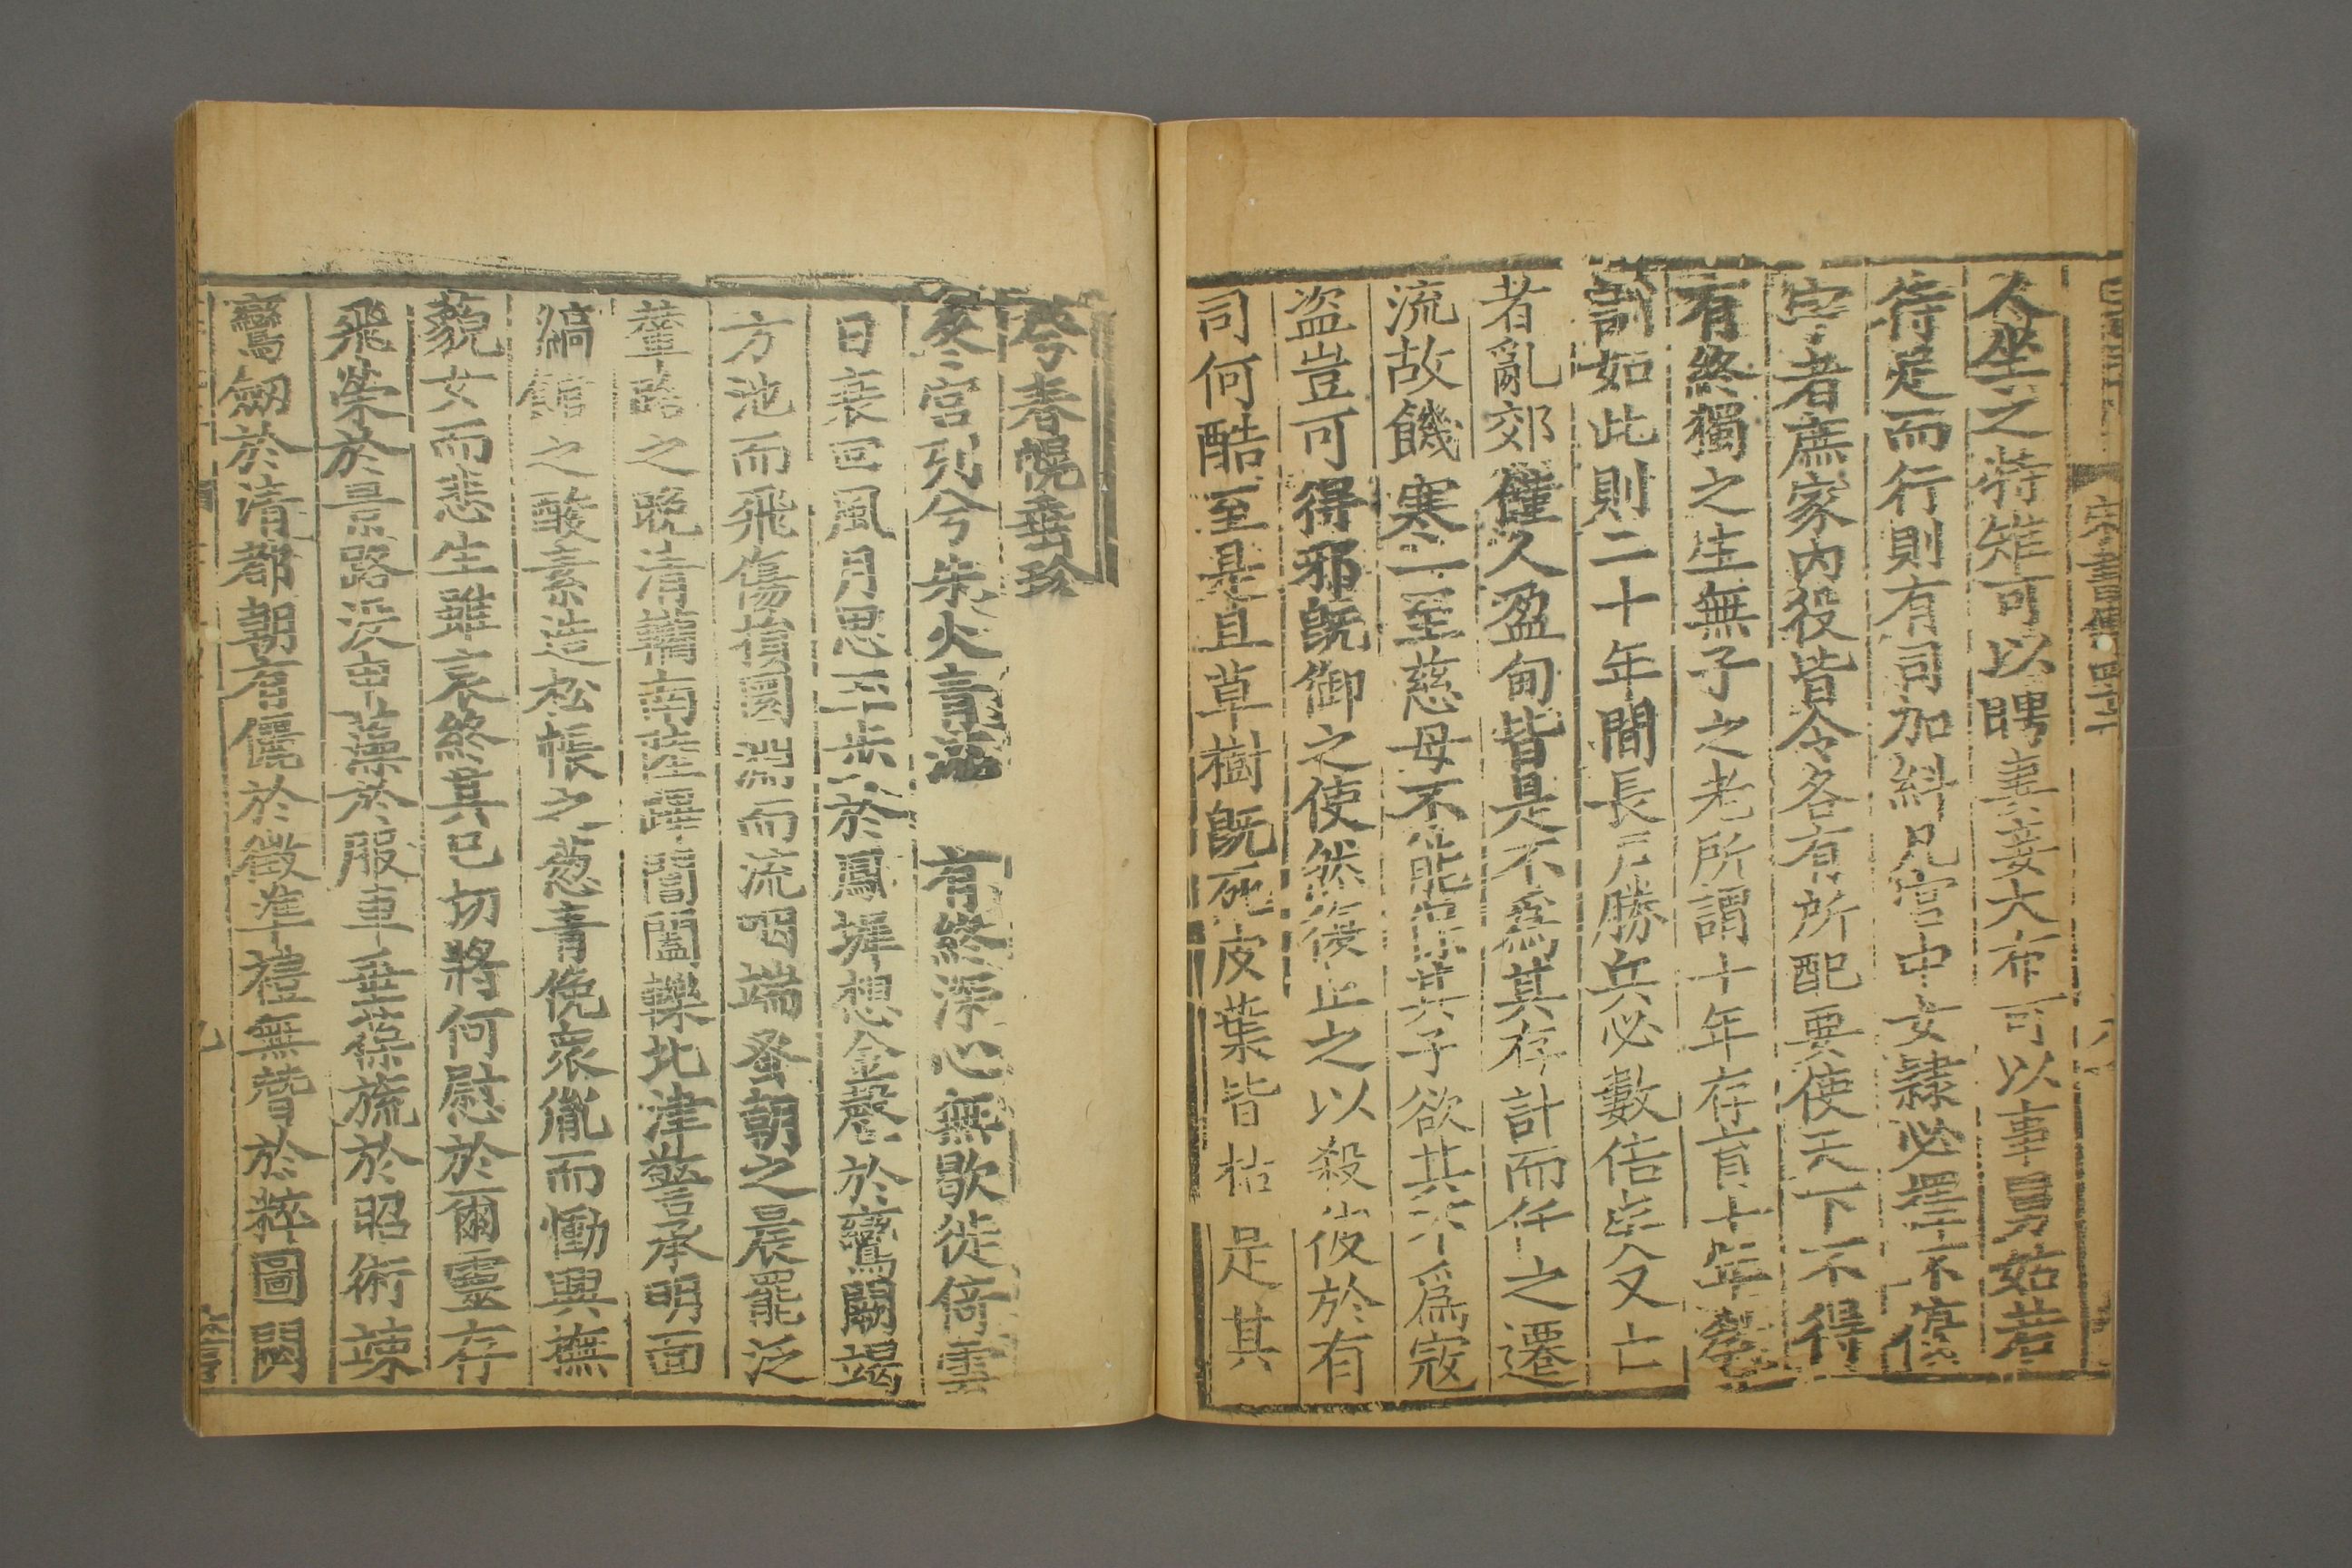 宋書傳四十二
人坐之特雉可以娉妻妾大布可以事舅姑若
待足而行則有司加糾凡宮中女隸必擇不復
字者庶家內役皆令各有所配要使天下不得
有終獨之生無子之老所謂十年存育十年教
訓如此則二十年間長戶勝兵必數倍矣又亡
者亂郊饉人盈甸皆是不為其存計而任之遷
流故饑寒一至慈母不能保其子欲其不為寇
盜豈可得邪既御之使然復止之以殺彼於有
司何酷至是且草樹既死皮葉皆枯是其
兮春幌垂珍
冬宮列兮朱火青 有終深心無歇徙倚雲
日裵回風月思玉步於鳳墀想金聲於鸞闕竭
方池而飛傷損園淵而流咽端蚤朝之晨罷泛
輦路之晚清轥南陸蹕閶闔轢北津警承明面
縞館之酸素造松帳之葱青俛衆胤而慟興撫
藐女而悲生雖哀終其已切將何慰於爾靈存
飛榮於景路沒申藻於服車垂葆旒於昭術竦
鸞劒於清都朝有儷於徵準禮無替於粹圖閟
九